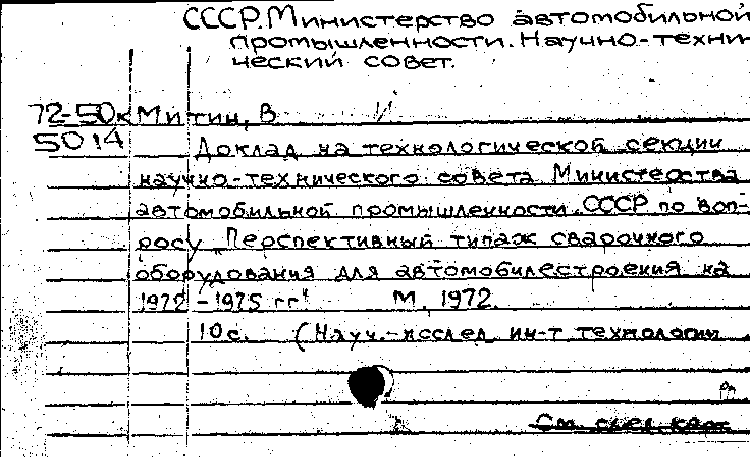 СССР. Министерство автомобильной
промышленности. Научно-техни
ческий совет.
72-50к Митин, В
5014
Доклад на технологической секции
научно-технического совета Министерства
автомобильной промышленности СССР по воп-
росу „Перспективный типаж сварочного
оборудования для автомобилестроения на
1972-1975 гг" М, 1972.
10с. (Науч.-исслед ин-т технологии
См след карт